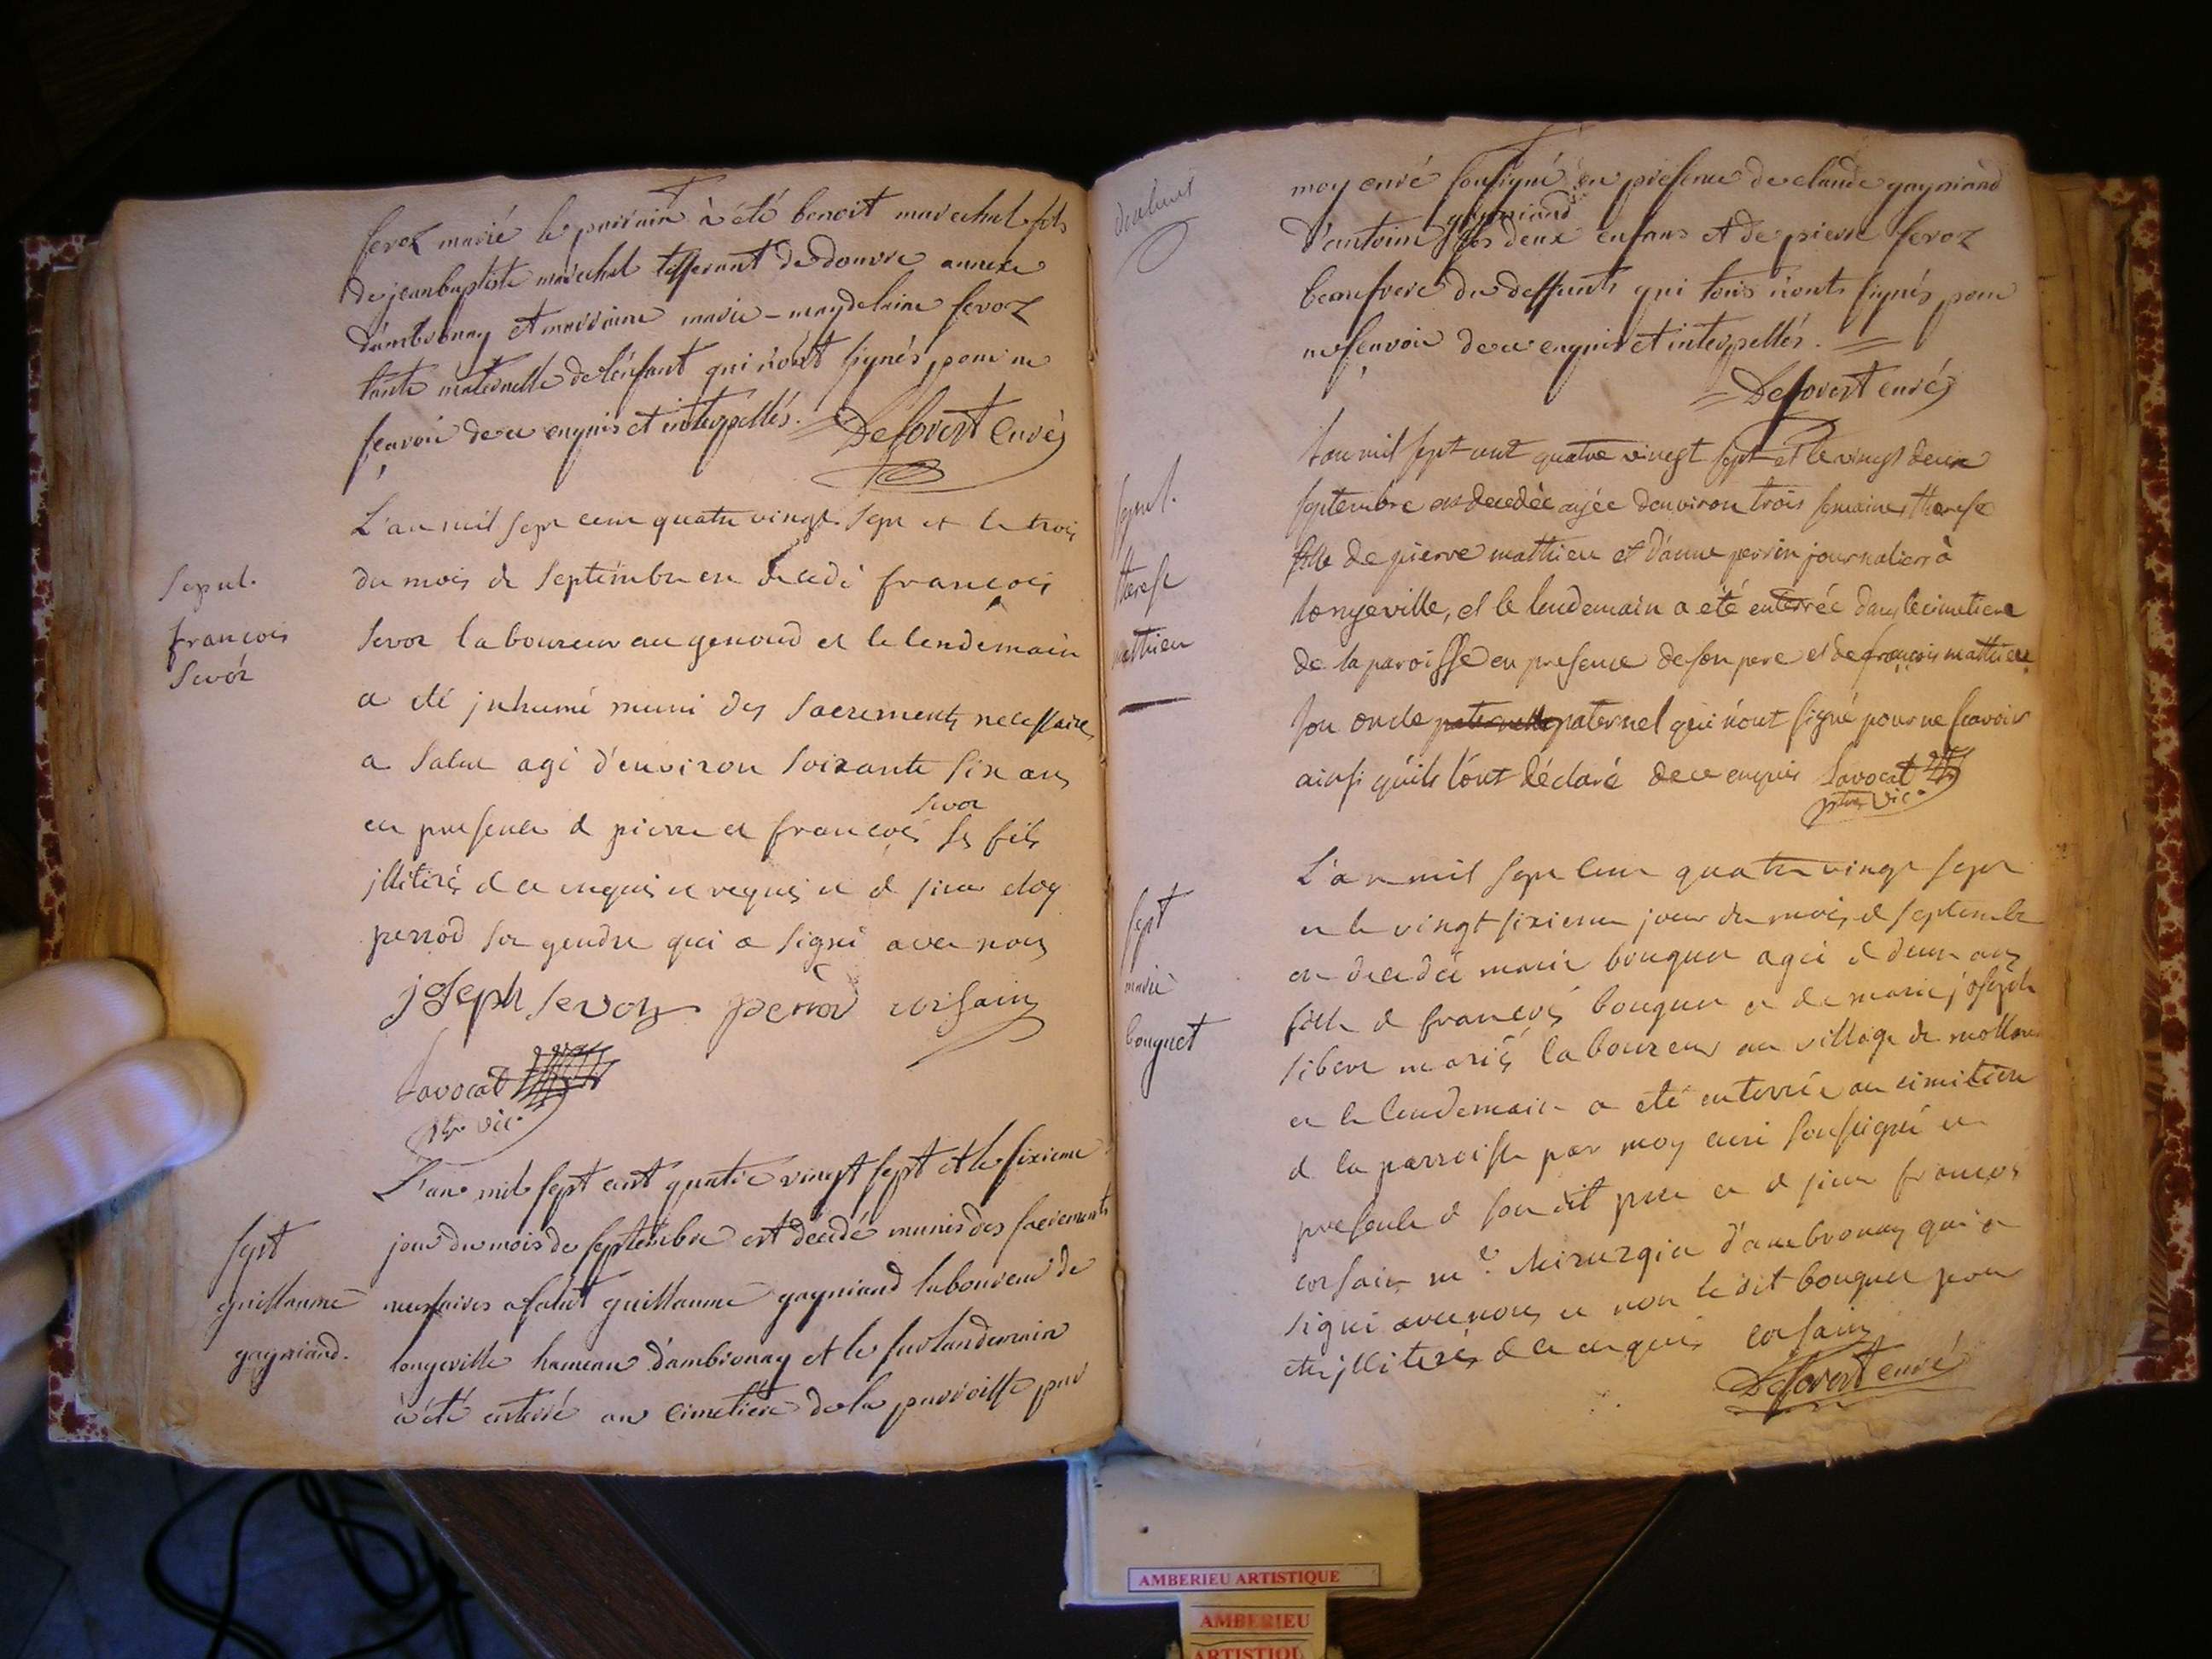 fevoz marié le parrain à été benoit marechal fils
de jeanbaptiste marechal tisserant de douvre annexe
d'ambronay et marraine marie-magdelaine fevoz
tante maternelle de l'enfant qui n'ont signés pour ne
sçavoir de ce enquis et interpellés. Desovert curé
Sepul.
francois
Sevoz
L'an mil sept cent quatre vingt sept et le trois
du mois de Septembre est decedé francois
Sevoz laboureur au genoud et le lendemain
a eté inhumé muni des Sacrements necessaires
a Salut agé d'environ soixante six ans
en presence de pierre et francois sevoz ses fils
illiterés de ce enquis et requis et de sieur eloy
perrod son gendre qui a signé avec nous
joseph sevoz perrod corsain
Lavocat
ptre vic.
sept
guillaume
gagniand.
L'an mil sept cent quatre vingt sept et le sixieme
jour du mois de septembre est decedé munis des sacrements
necessaires a salut guillaume gagniand laboureur de
longeville hameau d'ambronay et le surlandemain
à été enterré au cimetiere de la parroisse par
moy curé soussigné en presence de claude gagniand
d'antoine gagniand ses deux enfans et de pierre fevoz
beaufrere du deffunt qui tous n'ont signés pour
ne sçavoir de ce enquis et interpellés.
Desovert curé
sepul.
therese
mathieu
L'an mil sept cent quatre vingt sept et le vingt deux
septembre est decedée agée d'environ trois semaines therese
fille de pierre mathieu et d'anne perrin journalier à
longeville, et le lendemain a eté enterrée dans le cimetiere
de la paroisse en presence de son pere et de françois mathieu
son oncle paternel qui n'ont signé pour ne scavoir
ainsi qu'ils l'ont déclaré de ce enquis Lavocat
ptre vic.
sept
marie
bouquet
L'an mil sept cent quatre vingt sept
et le vingt sixieme jour du mois de septembre
est decedée marie bouquet agée de deux ans
fille de francois bouquet et de marie joseph
sibert mariés laboureur au village de mollon
et le lendemain a eté enterrée au cimitiere
de la parroisse par moy curé soussigné en
presence de son dit pere et de sieur francois
corsain me. chirurgien d'ambronay qui a
signé avec nous et non le dit bouquet pour
etre illiteré de ce enquis corsain
Desovert curé
AMBERIEU ARTISTIQUE
AMBERIEU
ARTISTIQU